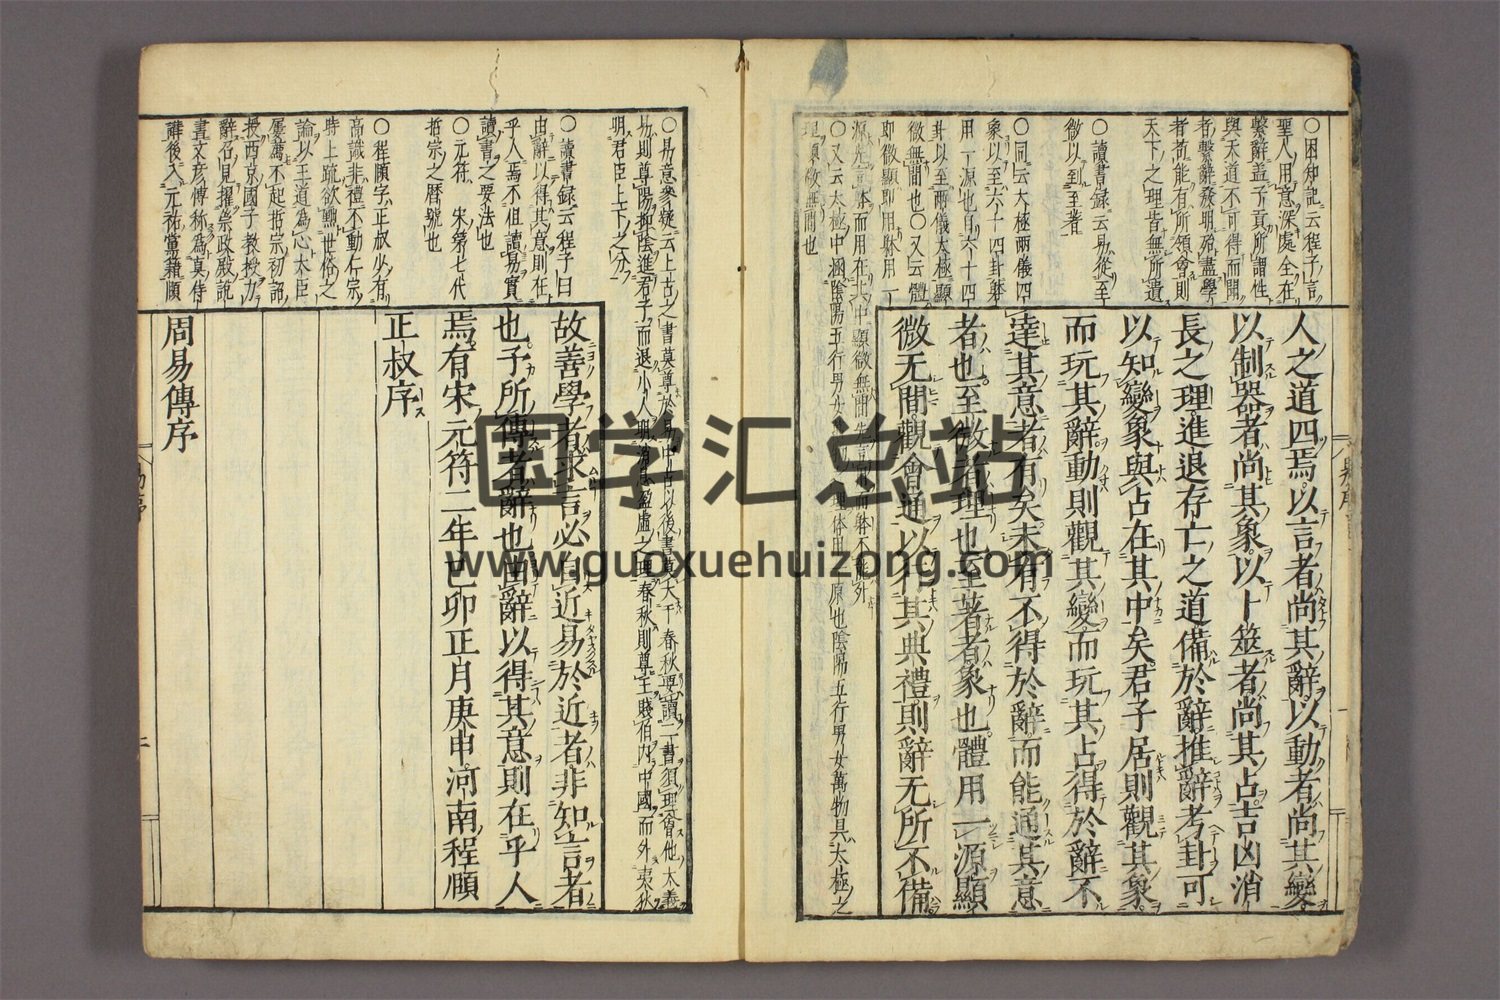 ○困知記云程子言
聖人用意深處全在
繫辭蓋子貢所謂性
與天道不可得而聞
者繫辭發明殆盡學
者苟能有所領會則
天下之理皆無所遺
○讀書録云易從至
微以到至著
○同云大極兩儀四
象以至六十四卦擧
用一源也自六十四
卦以至兩儀太極顯
微無間也○又云體
即微顯即用
人之道四焉以言者尚其辭以動者尚其變
以制器者尚其象以卜筮者尚其占吉凶消
長之理進退存亡之道備於辭推辭考卦可
以知變象與占在其中矣君子居則觀其象
而玩其辭動則觀其變而玩其占得於辭不
達其意者有矣未有不得於辭而能通其意
者也至微者理也至著者象也體用一源顯
微无間觀會通以行其典禮則辭无所不備
○又云太極中涵陰陽五行男女
原也陰陽五行男女萬物具太極之
理顯微無間也
○易意參疑云上古之書莫尊於易中古以後書莫大于春秋要讀二書須理會他大義
易則尊陽抑陰進君子而退小人明消息盈虛之理春秋則尊王賤伯內中國而外夷狄
明君臣上下之分
○讀書録云程子曰
由辭以得其意則在
乎人焉不但讀易實
讀書之要法也
○元符 宋第七代
哲宗之曆號也
○程頤字正叔必有
高識非禮不動仁宗
時上疏欲黜世俗之
論以王道為心大臣
屢薦不起哲宗初詔
授西京國子教授力
辭召見擢崇政殿說
書文彦傅称為真侍
講後入元祐黨籍頤
故善學者求言必自近易於近者非知言者
也予所傳者辭也由辭以得其意則在乎人
焉有宋元符二年己卯正月庚申河南程頤
正叔序
周易傳序
易序
二
国学汇总站
www.guoxuehuizong.com